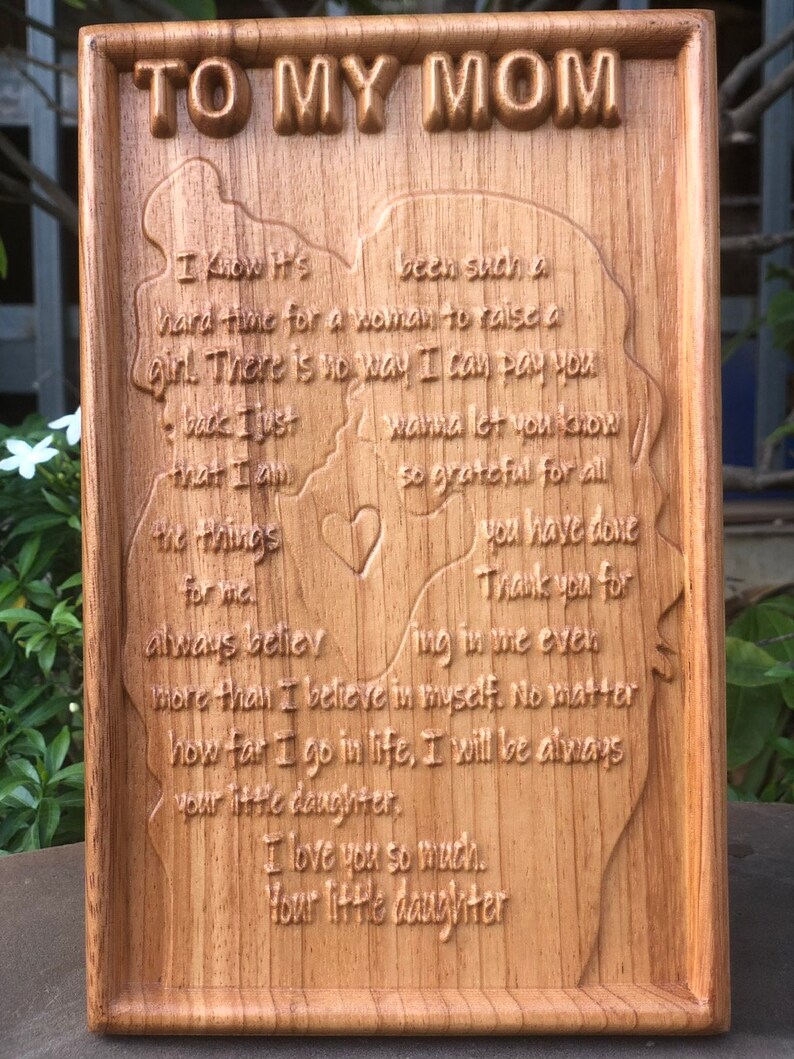 TO MY MOM
I Know it's been such a
hard time for a woman to raise a
girl. There is no way I can pay you
back I just wanna let you know
that I am so grateful for all
the things you have done
for me. Thank you for
always believ ing in me even
more than I believe in myself. No matter
how far I go in life, I will be always
your little daughter.
I love you so much.
Your little daughter